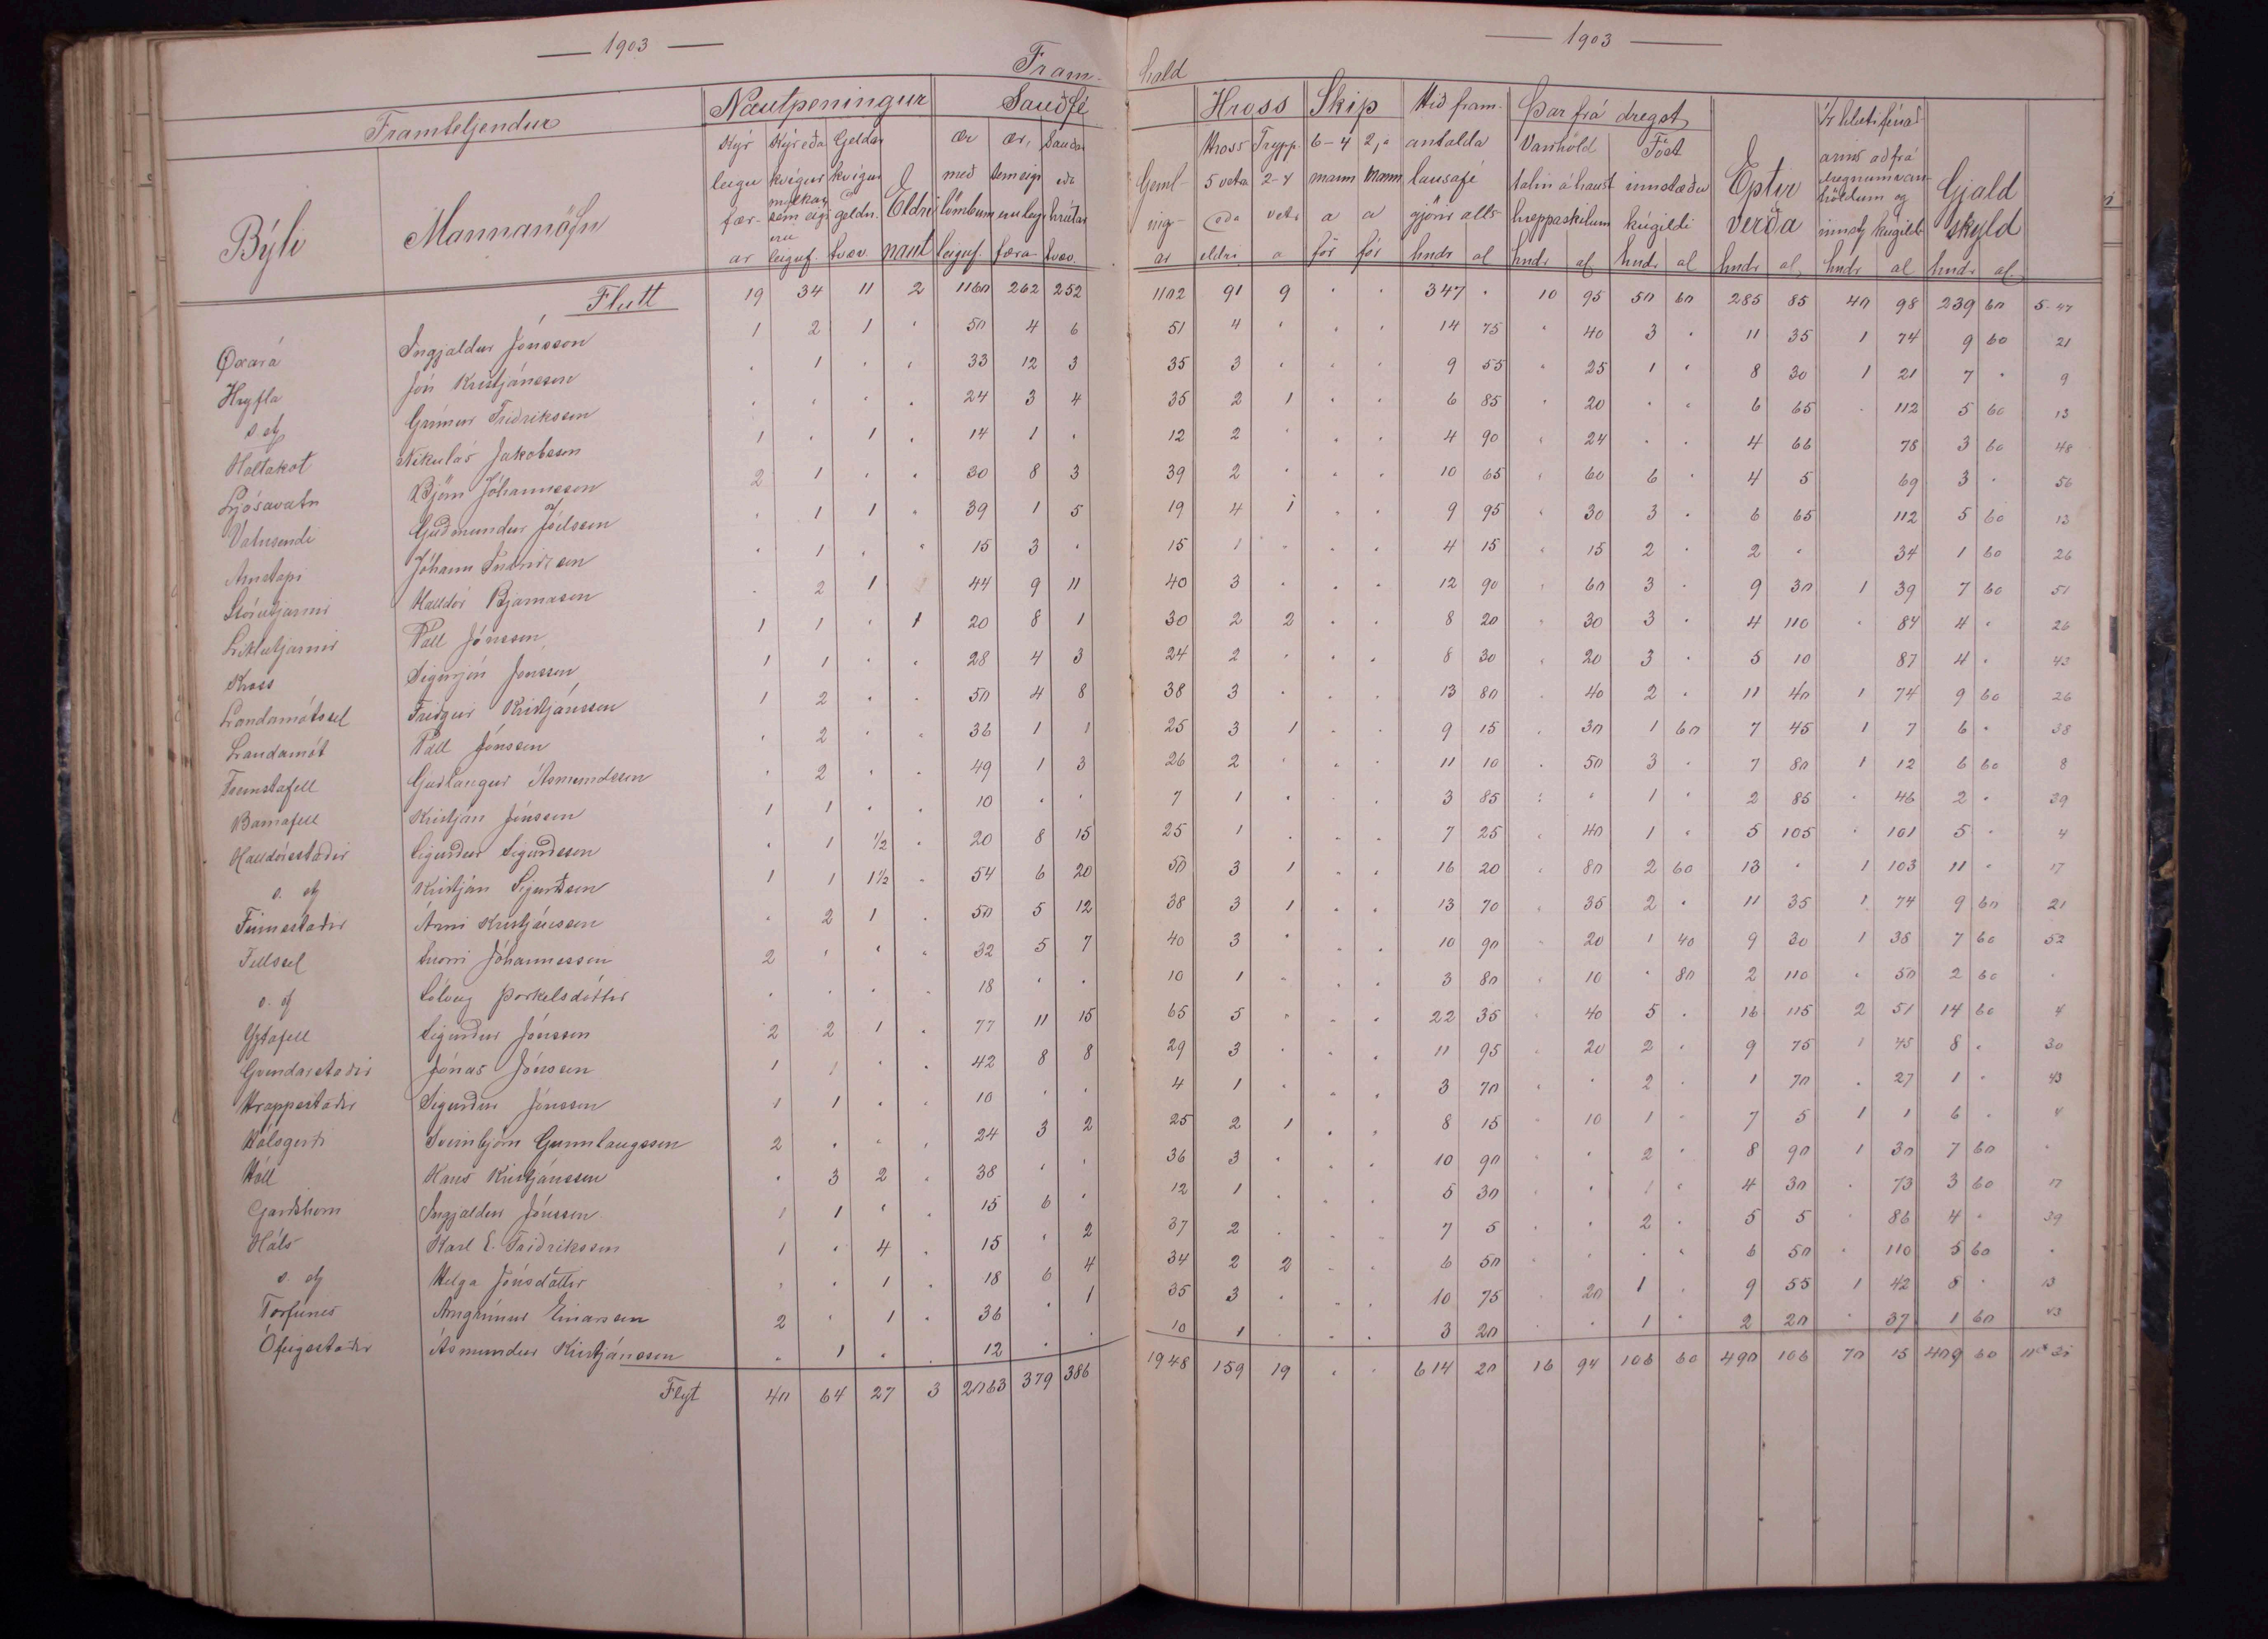 — 1903 —
— 1903 —
Fram-
hald
Framteljendur
Nautpeningur
Sauðfé
Hross
Skip
Þar frá dregst
Býli
Mannanöfn
Eptir verða
Gjald skyld
Flutt 19 34 11 2 1160 262 252 1102 91 9 " " 347 " 10 95 50 60 285 85 40 98 239 60 5-47
Öxará Ingjaldur Jónsson 1 2 1 " 50 4 6 51 4 " " " 14 75 " 40 3 " 11 35 1 74 9 60 21
Hryfla Jón Kristjánsson " 1 " " 33 12 3 35 3 " " " 9 55 " 25 1 " 8 30 1 21 7 " 9
s. st Grímur Fridriksson " " " " 24 3 4 35 2 1 " " 6 85 " 20 " " 6 65 " 112 5 60 13
Holtakot Nikulás Jakobsson 1 " 1 " 14 1 " 12 2 " " " 4 90 " 24 " " 4 66 78 3 60 48
Ljósavatn Björn Jóhannsson 2 1 " " 30 8 3 39 2 " " " 10 65 " 60 6 " 4 5 69 3 " 56
Vatnsendi Guðmundur Jóelsson " 1 1 " 39 1 5 19 4 1 " " 9 95 " 30 3 " 6 65 112 5 60 13
Arnstapi Jóhann " 1 " " 15 3 " 15 1 " " " 4 15 " 15 2 " 2 " 34 1 60 26
Stórutjarnir Halldór Bjarnason " 2 1 44 9 11 40 3 " " " 12 90 " 60 3 " 9 30 1 39 7 60 51
Litlutjarnir Páll Jónsson 1 1 " 1 20 8 1 30 2 2 " " 8 20 " 30 3 " 4 110 " 84 4 " 26
Kross Sigurjón Jónsson 1 1 " " 28 4 3 24 2 " " " 8 30 " 20 3 " 5 10 87 4 " 43
Landamótssel Fridgeir Kristjánsson 1 2 " " 50 4 8 38 3 " " " 13 80 " 40 2 " 11 40 1 74 9 60 26
Landamót Páll Jónsson " 2 " " 36 1 1 25 3 1 " " 9 15 " 30 1 60 7 45 1 7 6 " 38
Fremstafell Guðlaugur Ásmundsson " 2 " " 49 1 3 26 2 " " " 11 10 " 50 3 " 7 80 1 12 6 60 8
Barnafell Kristján Jónsson 1 1 " " 10 " " 7 1 " " " 3 85 " " 1 " 2 85 " 46 2 " 29
Halldórsstaðir Sigurður Sigurðsson " 1 1/2 " 20 8 15 25 1 " " " 7 25 " 40 1 " 5 105 " 101 5 " 4
s. st Kristján Sigurðsson 1 1 1 1/2 " 54 6 20 50 3 1 " " 16 20 " 80 2 60 13 " 1 103 11 " 17
Finnsstaðir Árni Kristjánsson " 2 1 " 50 5 12 38 3 1 " " 13 70 " 35 2 " 11 35 1 74 9 60 21
Fellssel Snorri Jóhannesson 2 " " " 32 5 7 40 3 " " " 10 90 " 20 1 40 9 30 1 38 7 60 52
s. st Sólveig Þorkelsdóttir " " " " 18 " " 10 1 " " " 3 80 " 10 " 80 2 110 " 50 2 60 "
Yztafell Sigurður Jónsson 2 2 1 " 77 11 15 65 5 " " " 22 35 " 40 5 " 16 115 2 51 14 60 4
Gvendarstaðir Jónas Jónsson 1 1 " " 42 8 8 29 3 " " " 11 95 " 20 2 " 9 75 1 45 8 " 30
Hrappsstaðir Sigurður Jónsson 1 1 " " 10 " " 4 1 " " " 3 70 " " 2 " 1 70 " 27 1 " 43
Kálsgerði Sveinbjörn Gunnlaugsson 2 " " " 24 3 2 25 2 1 " " 8 15 " 10 1 " 7 5 1 1 6 " 4
Háll Hans Kristjánsson " 3 2 " 38 " " 36 3 " " " 10 90 " " 2 " 8 90 1 30 7 60 "
Garðshorn Ingjaldur Jónsson 1 1 " " 15 6 " 12 1 " " " 5 30 " " 1 " 4 30 " 73 3 60 17
Háls Karl E. Fridriksson 1 " 4 " 15 " 2 37 2 " " " 7 5 " " 2 " 5 5 " 86 4 " 39
s. st Helga Jónsdóttir " " 1 " 18 6 4 34 2 2 " " 6 50 " " " " 6 50 " 110 5 60 "
Torfunes Arngrímur Einarsson 2 " 1 " 36 " 1 35 3 " " " 10 75 " 20 1 " 9 55 1 42 8 " 13
Ófeigsstaðir Ásmundur Kristjánsson " 1 " " 12 " " 10 1 " " " 3 20 " " 1 " 2 20 " 37 1 60 43
Flyt 40 64 27 3 2063 379 386 1948 159 19 " " 614 20 16 94 106 60 490 106 70 15 409 60